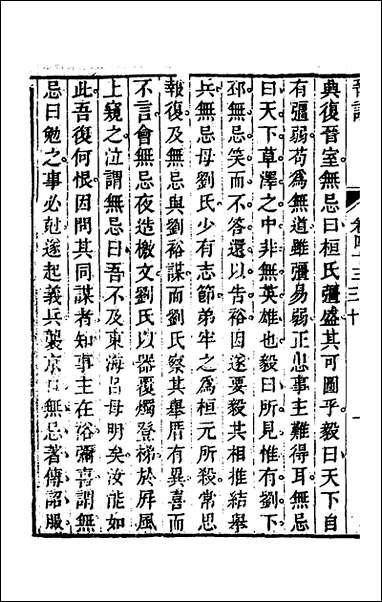 晉記
卷四十三
三十
典復晉室無忌曰桓氏彊盛其可圖乎毅曰天下自
有彊弱苟為無道雖彊易弱正患事主難得耳無忌
曰天下草澤之中非無英雄也毅曰所見惟有劉下
邳無忌笑而不答還以告裕因遂要毅其相推結舉
兵無忌母劉氏少有志節弟牢之為桓元所殺常思
報復及無忌與劉裕謀而劉氏察其舉厝有異喜而
不言會無忌夜造檄文劉氏以器覆燭登梯於屏風
上窺之泣謂無忌曰吾不及東海呂母明矣汝能如
此吾復何恨因問其同謀者知事主在裕彌喜謂無
忌曰勉之事必尅遂起義兵襲京口無忌著傳詔服